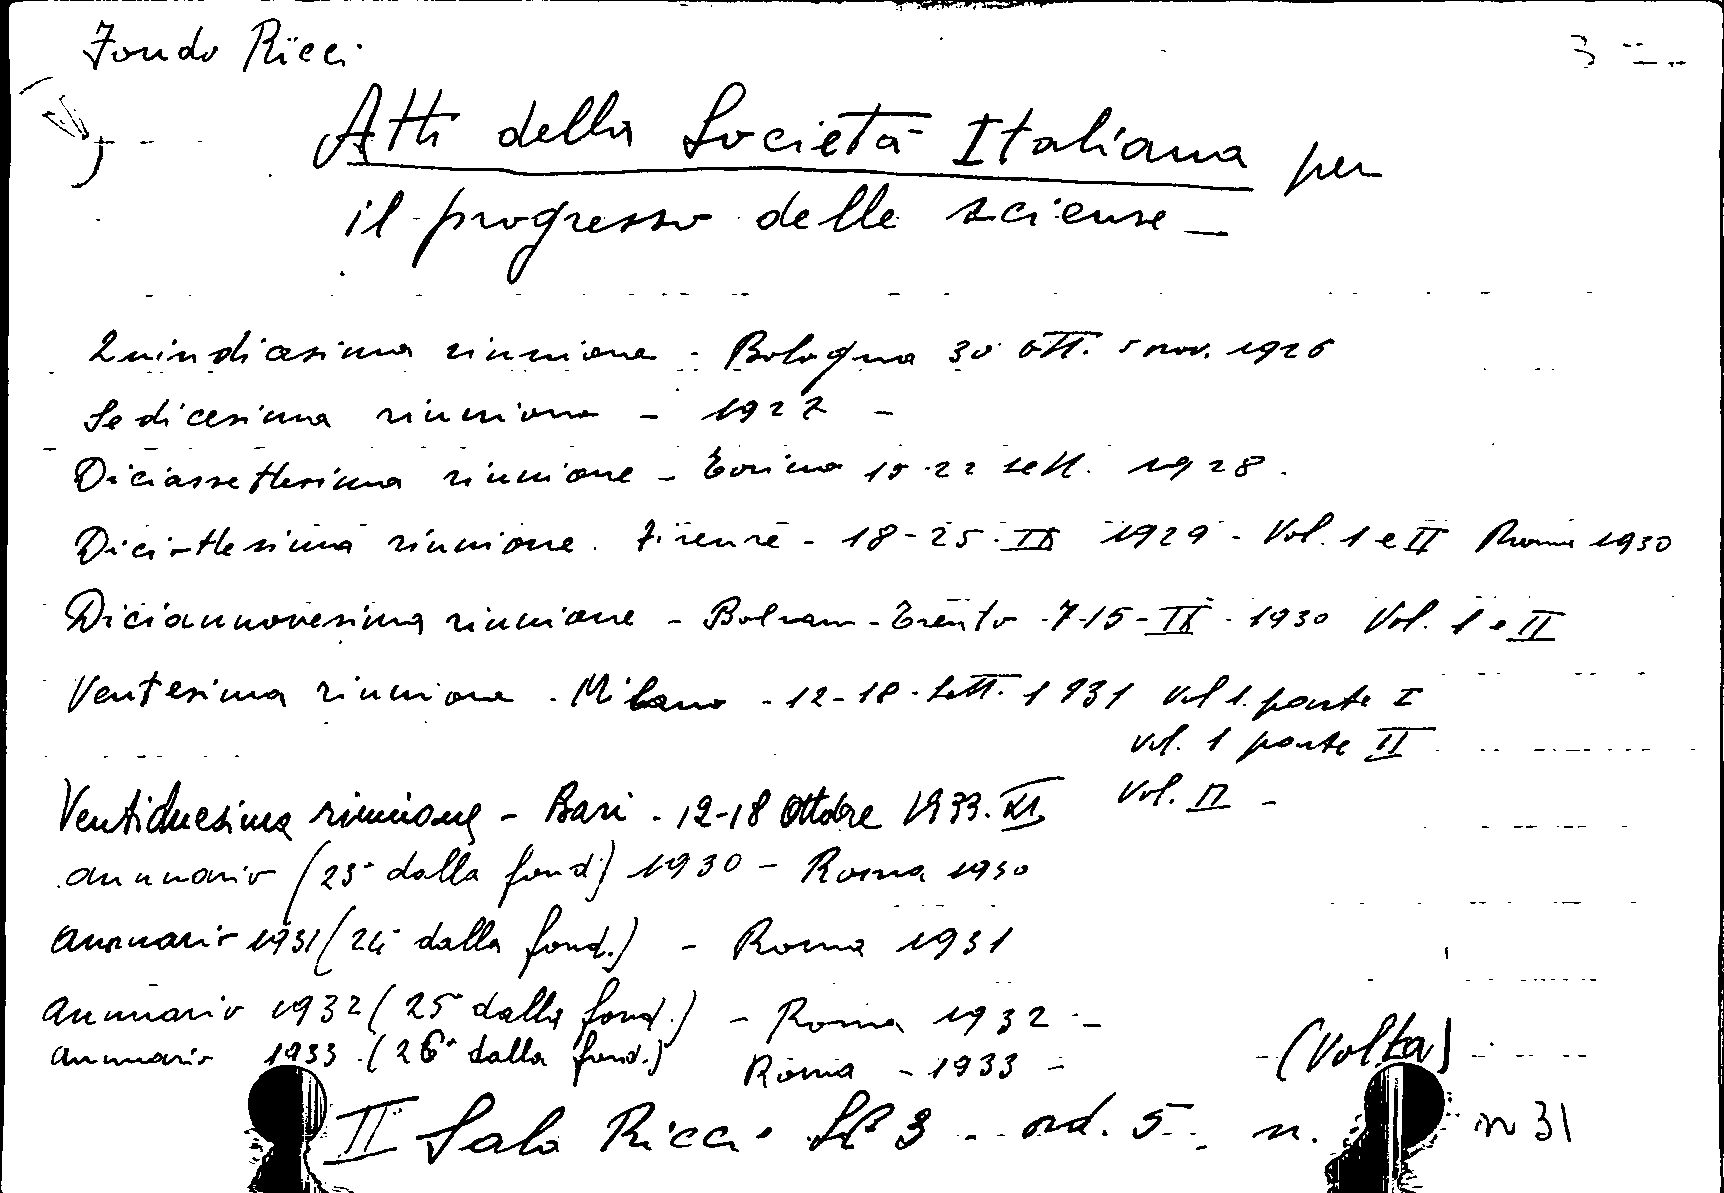 Fondo Ricci
Atti della Società Italiana per
il progresso delle scienze
Quindicesima riunione - Bologna 30 ott. 5 nov. 1926
Sedicesima riunione - 1927 -
Diciassettesima riunione - Torino 15-22 sett. 1928.
Diciottesima riunione. Firenze - 18-25-IX 1929 - Vol. 1 e II Roma 1930
Diciannovesima riunione - Bolzano - Trento - 7-15-IX - 1930 Vol. 1 e II
Ventesima riunione - Milano - 12-18 - Sett. 1931 Vol 1. parte I
Vol. 1 parte II
Vol. II -
Ventiduesima riunione - Bari - 12-18 Ottobre 1933. XI
Annuario (23° dalla fond) 1930 - Roma 1930
Annuario 1931 (24° dalla fond.) - Roma 1931
Annuario 1932 (25° dalla fond.) - Roma 1932 -
Annuario 1933. (26° dalla fond.) Roma - 1933 -
(Volta)
II Sala Ricci. 3 - ord. 5 - n. n 31